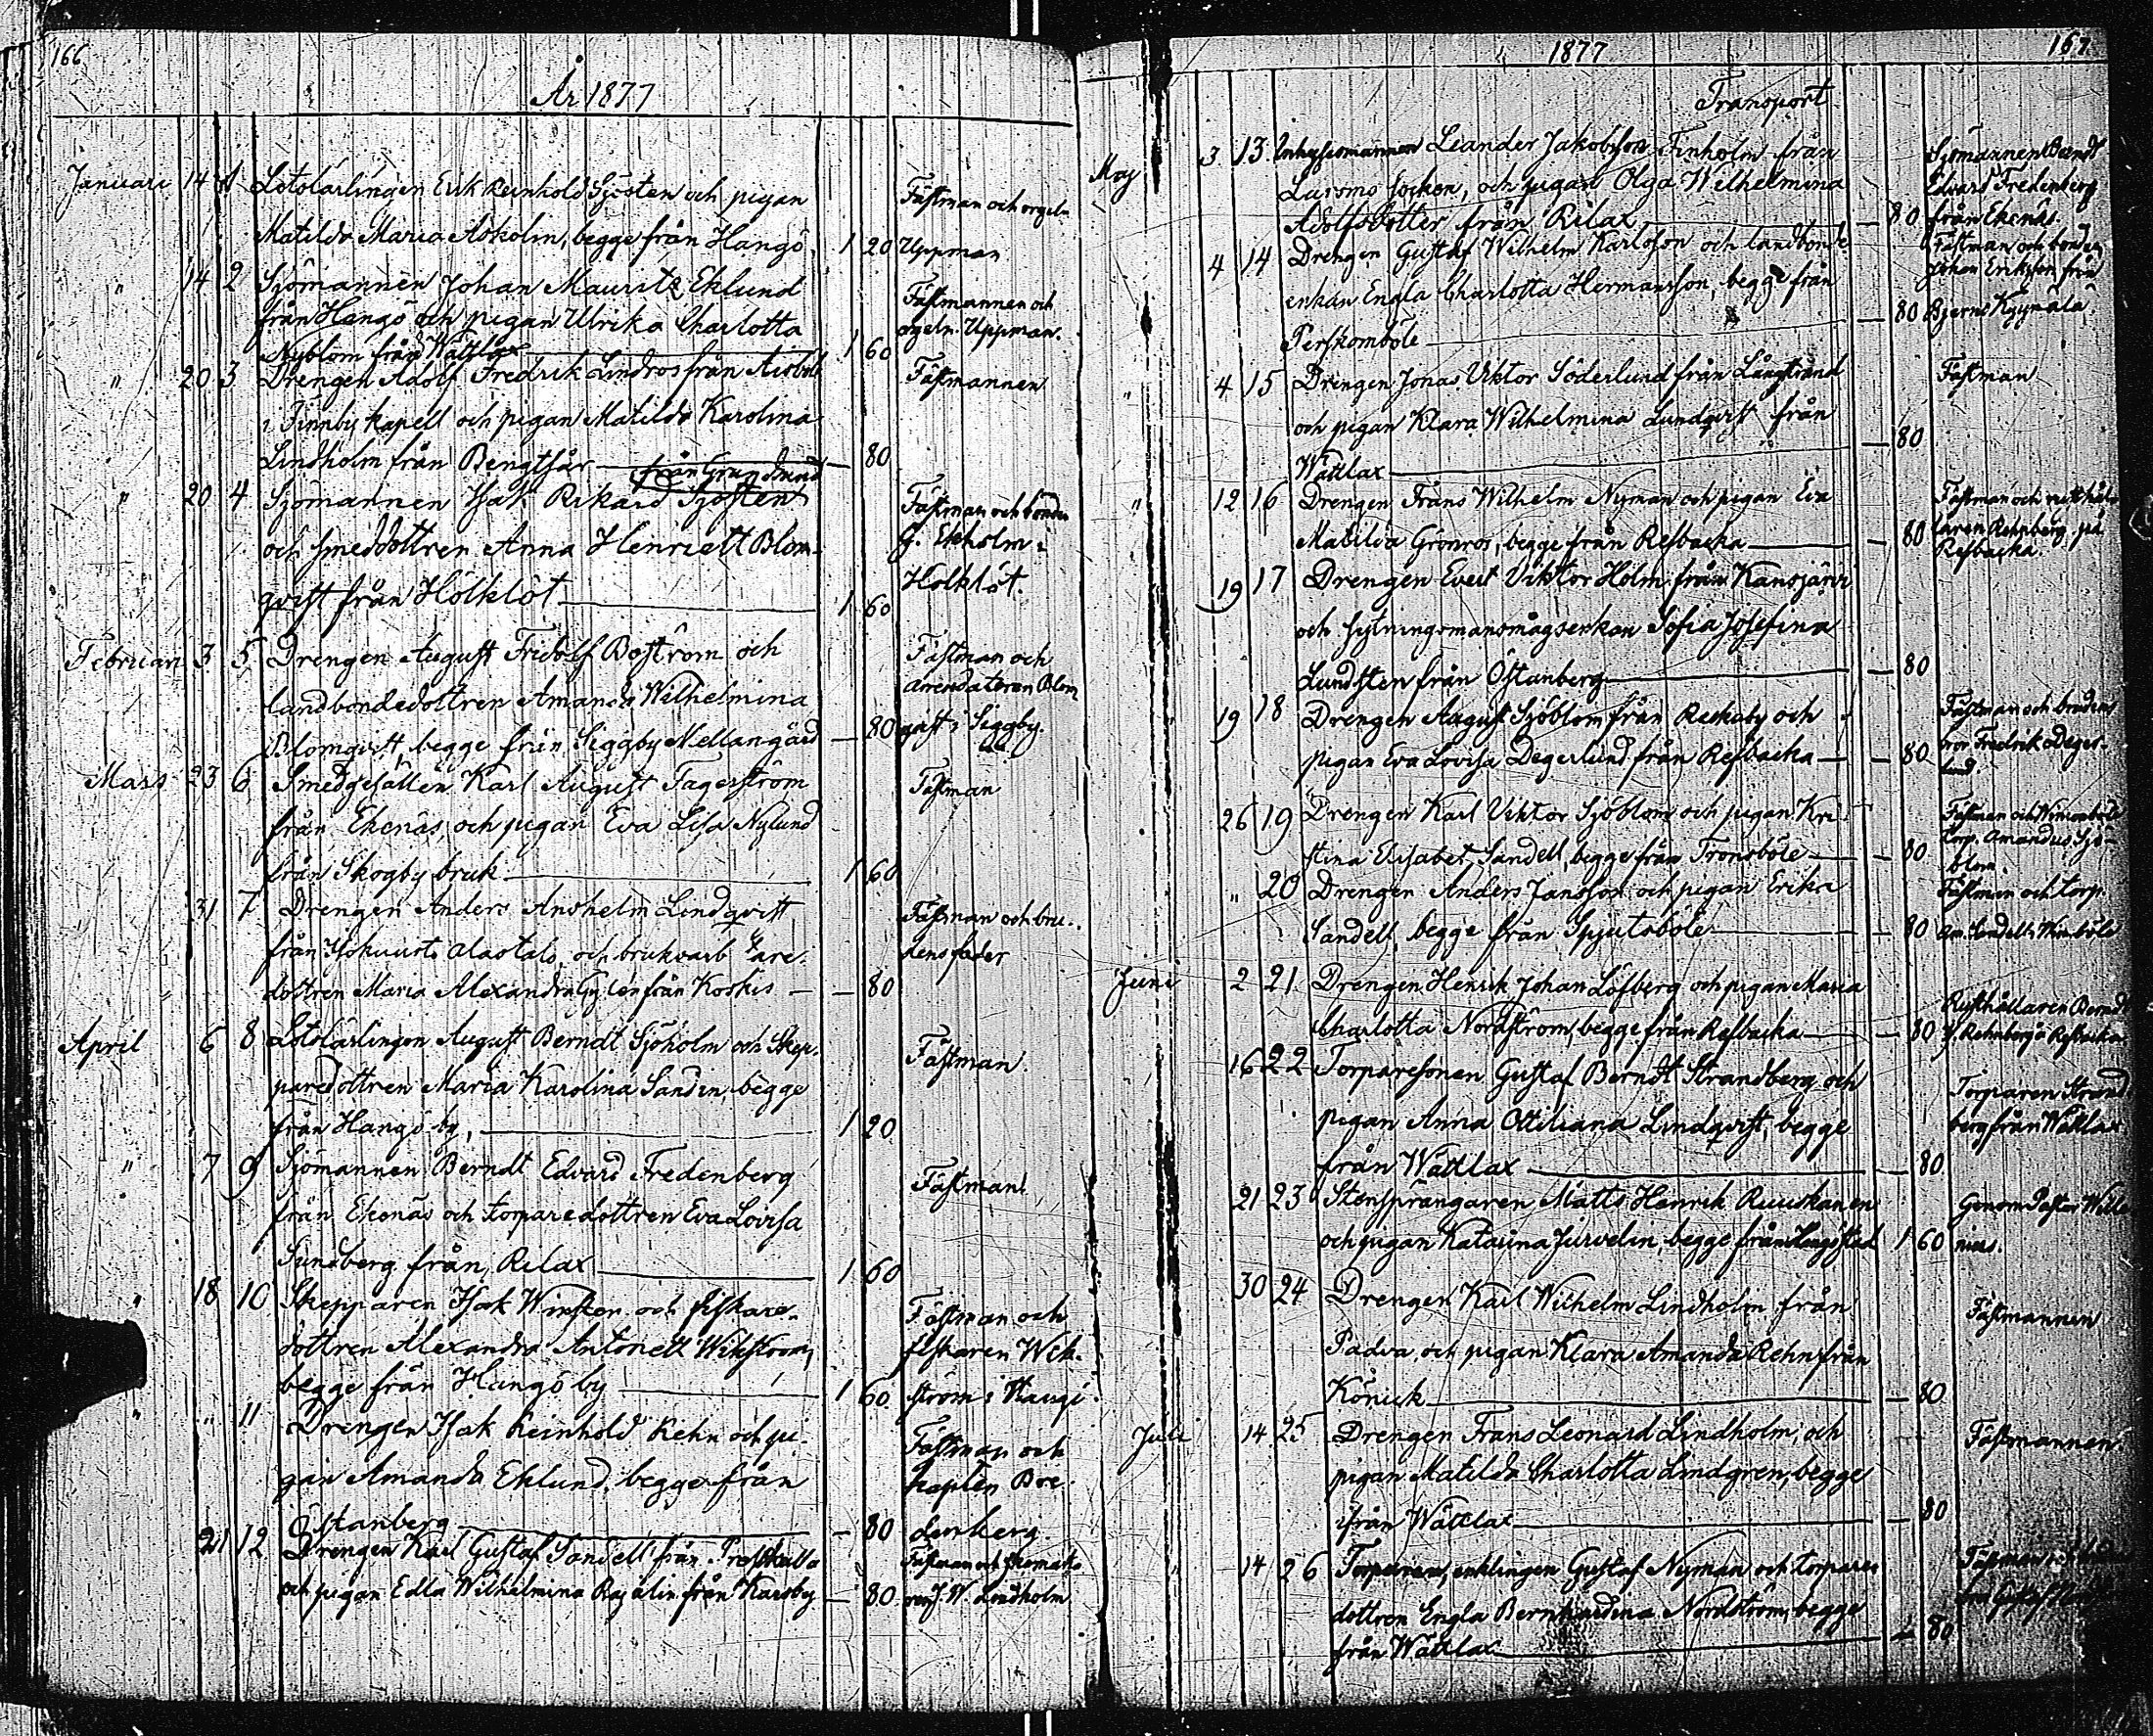 166
År 1877
Januari 14 1 Lotslärlingen Erik Reinhold Sjösten och pigan Fästman och orgeln.
Matilda Maria Askolin, begge från Hangö, 1 20 Uppman
" 14 2 Sjömannen Johan Mauritz Eklund Fästmannen och
från Hangö och pigan Ulrika Charlotta orgeln. Uppman.
Nyblom från Wättlax 1 60
" 20 3 Drengen Adolf Fredrik Lindros från Fästmannen
i Finnby kapell och pigan Matilda Karolina
Lindholm från Bengtsår — 80
från Grundsund
" 20 4 Sjömannen Isak Rikard Sjösten Fästman och bonden
och smeddottren Anna Henriett Blom- G. Ekholm i
qvist från Hölklöt 1 60 Hölklöt.
Februari 3 5 Drengen August Fridolf Boström och Fästman och
landbondedottren Amanda Wilhelmina arrendatoren Blom
Blomqvist, begge från Siggby Mellangård — 80 qvist i Siggby.
Mars 23 6 Smedgesällen Karl August Fagerström Fästman
från Ekenäs, och pigan Eva Lisa Nylund
från Skogby bruk 1 60
31 7 Drengen Anders Anshelm Lindqvist Fästman och bru-
från Alastalo, och dens fader
dottren Maria Alexandra Gylén från Koskis — 80
April 6 8 Lotslärlingen August Berndt Sjöholm och Skep- Fästman.
paredottren Maria Karolina Sandin, begge
från Hangö by, 1 20
" 7 9 Sjömannen Berndt Edvard Fredenberg Fästman
från Ekenäs och torparedottren Eva Lovisa
Sundberg från Rilax 1 60
" 18 10 Skepparen Isak Winsten och fiskare- Fästman och
dottren Alexandra Antonett Wikström, fiskaren Wik-
begge från Hangö by 1 60 ström i Hangö.
" " 11 Drengen Isak Reinhold Rehn och pi- Fästman och
gan Amanda Eklund, begge från kapten Boe-
Östanberg — 80
21 12 Drengen Karl Gustaf Sandell från Prestkulla Fästman och skomaka
och pigan Edla Wilhelmina från Karsby — 80 ren J. W. Lindholm
1877 167
Transport
Maj 3 13 Inhysesmannen Leander Jakobsson Finholm från Sjömannen Berndt
Larsmo socken, och pigan Olga Wilhelmina Edvard Fredenberg
Adolfsdotter från Rilax — 80 från Ekenäs.
4 14 Drengen Gustaf Wilhelm Karlsson och landbonde Fästman och bonden
enkan Engla Charlotta Hermansson, begge från Johan Eriksson från
Perskomböle — 80 Bjerno
" 4 15 Drengen Jonas Viktor Söderlund från Långstrand Fästman
och pigan Klara Wilhelmina Lundqvist från
Wättlax — 80
" 12 16 Drengen Frans Wilhelm Nyman och pigan Eva Fästman och rusthål-
Matilda Grönros, begge från Resbacka — 80 laren Rehnberg på
Resbacka.
19 17 Drengen Evert Viktor Holm från Kansjärvi
och sytningsmansmågsenkan Sofia Josefina
Lundsten från Östanberg — 80
19 18 Drengen August Sjöblom från och Fästman och brudens
pigan Eva Lovisa Degerlund från Resbacka — 80 bror Fredrik Deger-
lund.
26 19 Drengen Karl Viktor Sjöblom och pigan Kri- Fästman och
stina Elisabet Sandell, begge från Tronsböle — 80 torp. Amandus Sjö-
blom
" 20 Drengen Anders Jansson och pigan Erika Fästman och torp.
Sandell, begge från Spjutsböle — 80
Juni 2 21 Drengen Henrik Johan Löfberg och pigan Maria Rusthållaren Berndt
Charlotta Nordström, begge från Resbacka — 80 Rehnberg å Resbacka
16 22 Torparesonen Gustaf Berndt Strandberg och Torparen Strand-
pigan Anna Ottiliana Lindqvist, begge berg från Wättlax
från Wättlax — 80
21 23 Stensprängaren Matts Henrik Ruuskanen Genom Pastor Wille-
och pigan Katarina Jirvelin, begge från Hangö stad 1 60 nius.
30 24 Drengen Karl Wilhelm Lindholm från Fästmannen
Padva, och pigan Klara Amanda Rehn från
— 80
Juli 14 25 Drengen Frans Leonard Lindholm, och Fästmannen.
pigan Matilda Charlotta Lindgren, begge
från Wättlax — 80
14 26 Torparen, enklingen Gustaf Nyman och torpare
dottren Engla Bernhardina Nordström, begge
från Wättlax — 80